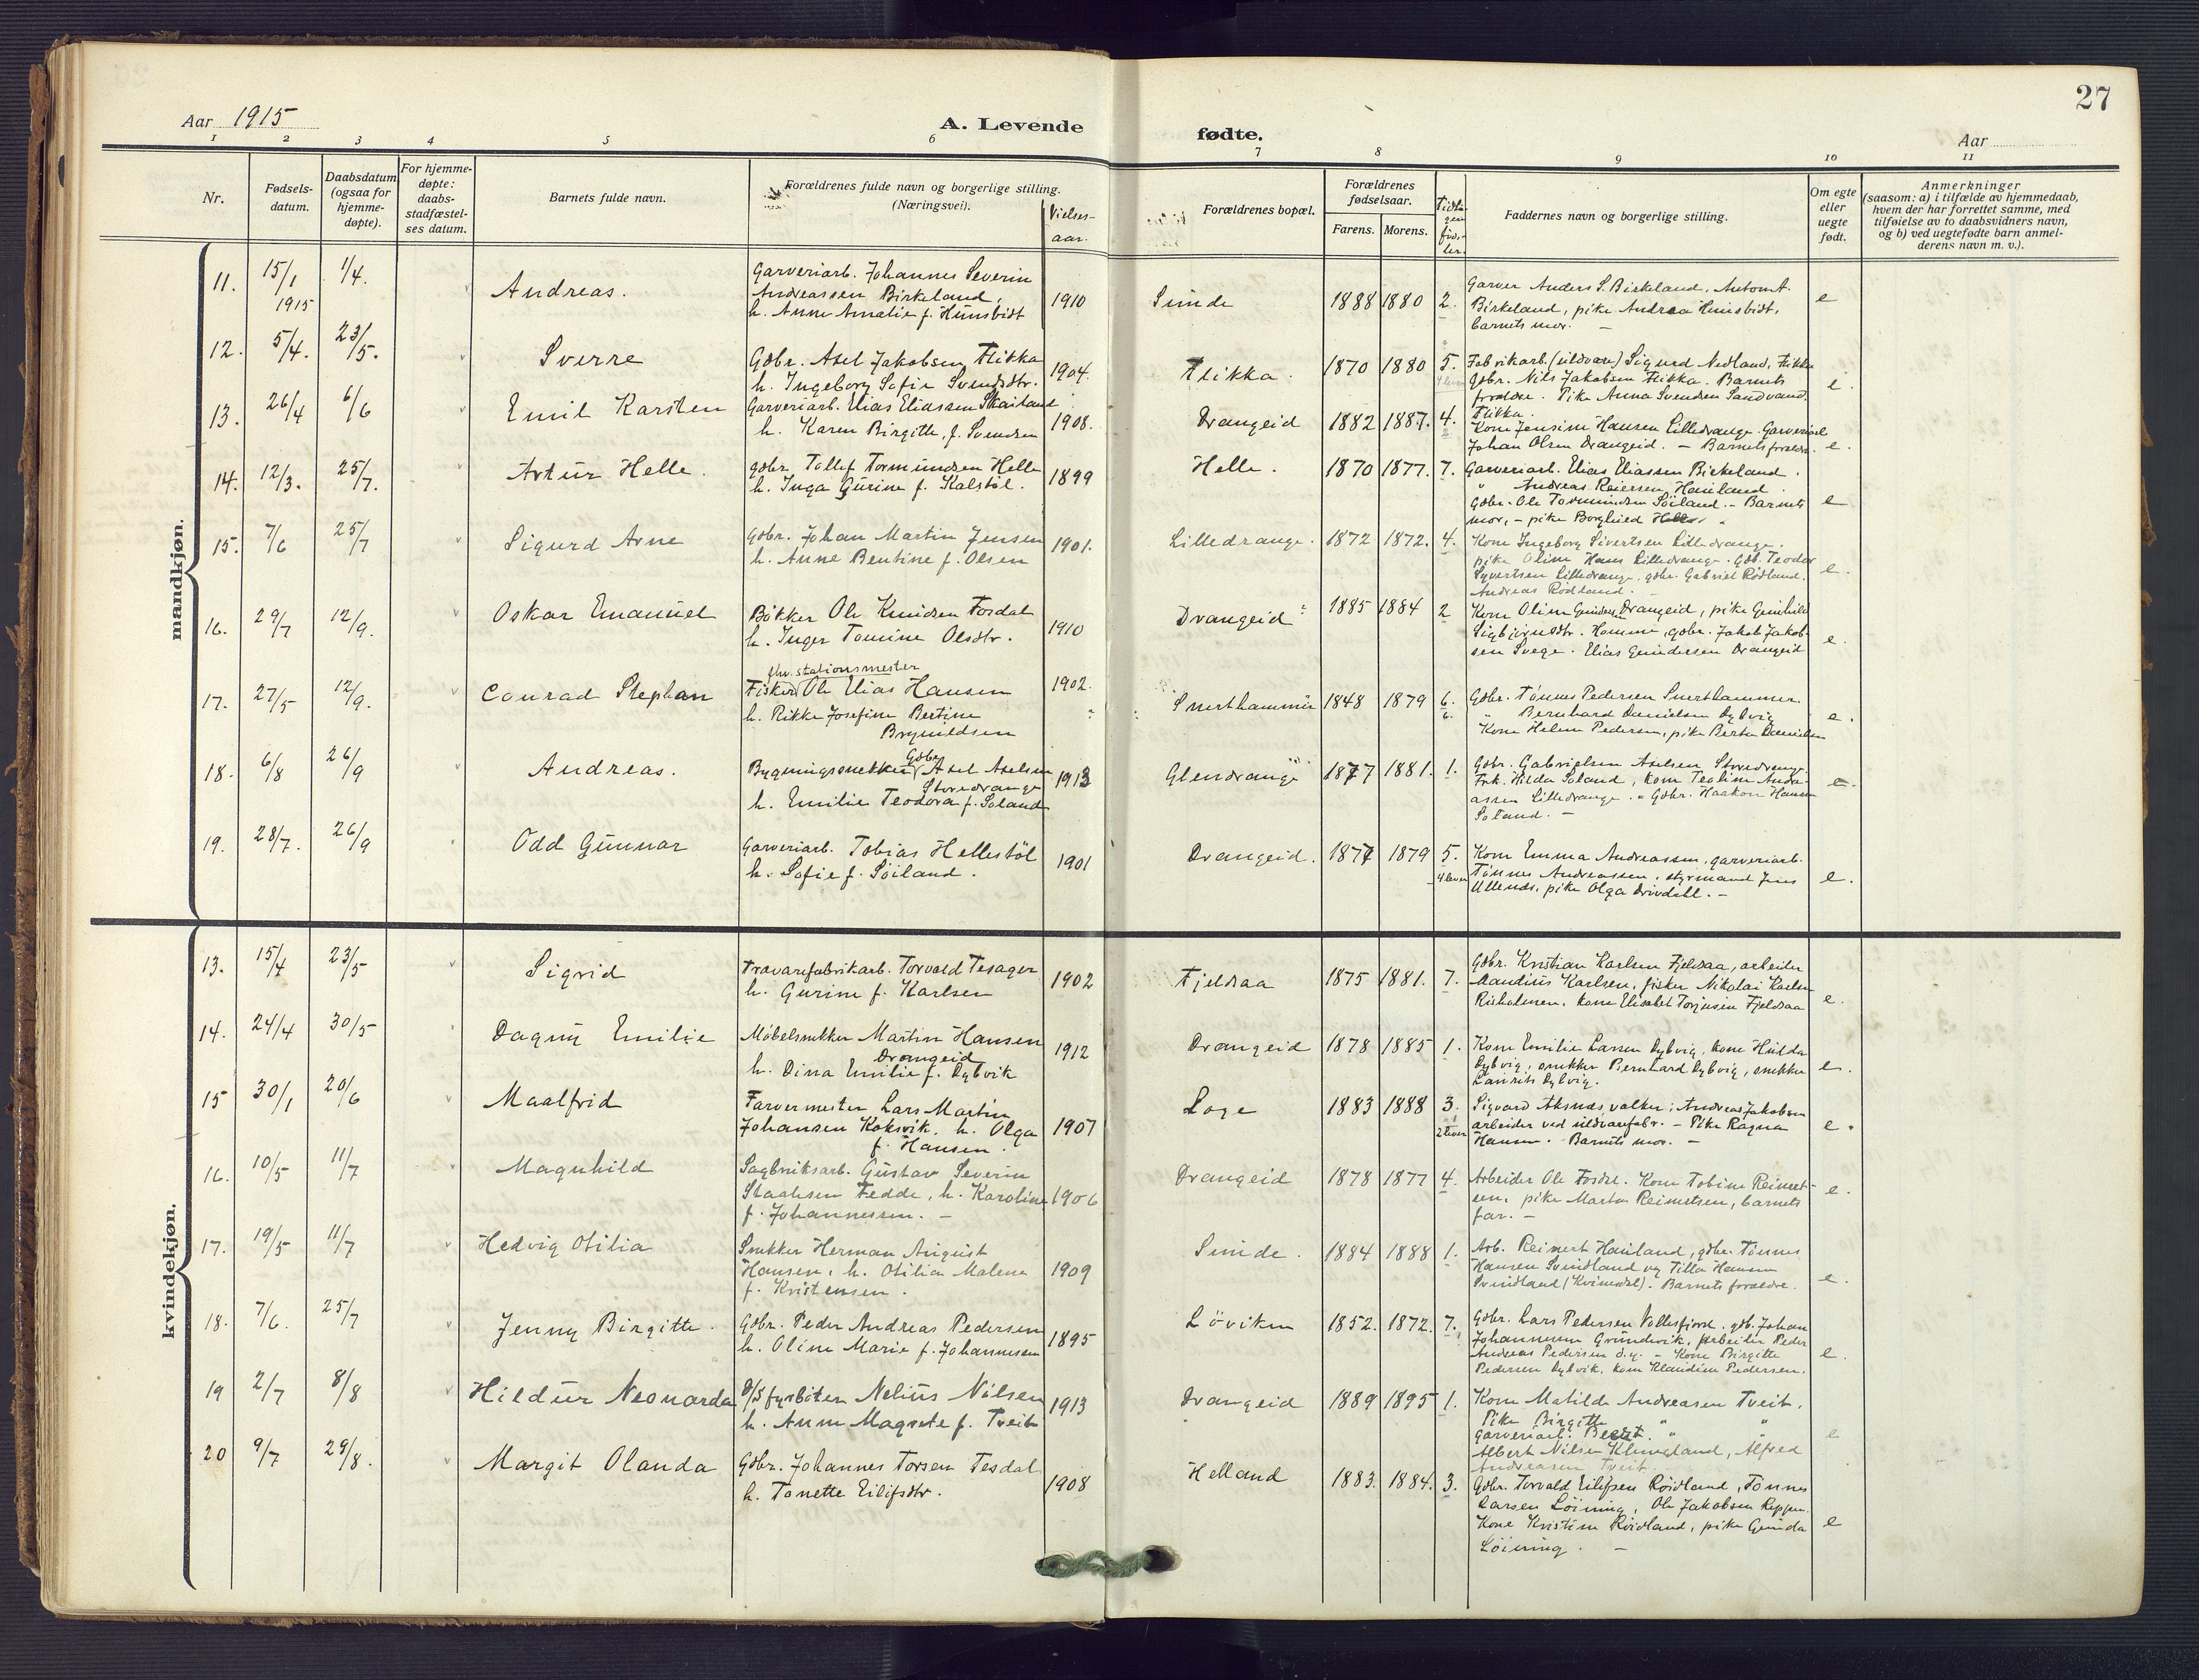 27
Aar 1915
A. Levende fødte.
Aar
1 2 3 4 5 6 7 8 9 10 11
Nr.
Fødsels-
datum.
Daabsdatum
(ogsaa for
hjemme-
døpte).
For hjemme-
døpte:
daabs-
stadfæstel-
ses datum.
Barnets fulde navn.
Forældrenes fulde navn og borgerlige stilling.
(Næringsvei).
Vielses-
aar.
Forældrenes bopæl.
Forældrenes
fødselsaar.
Farens. Morens.
Faddernes navn og borgerlige stilling.
Om egte
eller
uegte
født.
Anmerkninger
(saasom: a) i tilfælde av hjemmedaab,
hvem der har forrettet samme, med
tilføielse av to daabsvidners navn,
og b) ved uegtefødte barn anmel-
derens navn m. v.).
mandkjøn.
11. 15/1 1915 1/4. Andreas.
Garveriarb. Johannes Severin
Andreassen Birkeland,
h. Anne Amalie f. Hunsbidt
1910 Sunde 1888 1880 2.
Garver Anders S. Birkeland, Anton A.
Birkeland, pike Andrea Hunsbidt,
barnets mor. –
e
12. 5/4. 23/5. Sverre
Gdbr. Axel Jakobsen Flikka
h. Ingeborg Sofie Svendsdtr.
1904. Flikka. 1870 1880 5.
Fabrikarb. (uldvare) Sigurd Nedland, Flikka
Gdbr. Nils Jakobsen Flikka. Barnets
forældre. Pike Anna Svendsen Sandvand,
Flikka.
e.
13. 26/4 6/6 Emil Karsten
Garveriarb. Elias Eliassen Skailand
h. Karen Birgitte, f. Svendsen
1908. Drangeid 1882 1887. 4.
Kone Jensine Hansen Lilledrange. Garveriarb
Johan Olsen Drangeid. – Barnets forældre.
e.
14. 12/3. 25/7. Artur Helle.
gdbr. Tollef Tormundsen Helle
h. Inga Gurine f. Kalstøl.
1899 Helle. 1870 1877. 7.
Garveriarb. Elias Eliassen Birkeland.
" Andreas Reiersen, Hauland.
Gdbr. Ole Tormundsen Søiland. – Barnets
mor, – pike Borghild Helle.
e
15. 7/6 25/7 Sigurd Arne
Gdbr. Johan Martin Jensen
h. Anne Bentine f. Olsen
1901. Lilledrange. 1872 1872. 4.
Kone Ingeborg Sivertsen Lilledrange.
pike Oline Hans Lilledrange. Gdb. Teodor
Syvertsen Lilledrange, gdbr. Gabriel Rødland.
Andreas Rødland.
e.
16. 29/7 12/9. Oskar Emanuel
Bøkker Ole Knudsen Fosdal
h. Inger Tomine Olsdtr.
1910 Drangeid 1885 1884 2
Kone Oline Gundersen Drangeid, pike Gunhild
Sigbjørnsdtr. Homme, gdbr. Jakob Jakob-
sen Svege. Elias Gundersen Drangeid
e.
17. 27/5 12/9. Conrad Stephan
fhv. stationsmester
Fisker Ole Elias Hansen
h. Rikke Josefine Bertine
Brynildsen
1902. Snerthammer 1848 1879 6.
6.
Gdbr. Tønnes Pedersen Snerthammer
" Bernhard Danielsen Dybvig
Kone Helene Pedersen, pike Berta Danielsen
e.
18. 6/8 26/9 Andreas.
Gdbr.
Bygningssnekker Axel Axelsen
Storedrange
h. Emilie Teodora f. Soland
1913 Glendrange 1877 1881. 1.
Gdbr. Gabrielsen Axelsen Storedrange
Frk. Hilda Soland, kone Teoline Andre-
assen Lilledrange. – Gdbr. Haakon Hansen
Soland. –
e.
19. 28/7. 26/9 Odd Gunnar
Garveriarb. Tobias Hellestøl
h. Sofie f. Søiland.
1901 Drangeid. 1877 1879 5.
4 lever
Kone Emma Andreassen, garveriarb.
Tønnes Andreassen, styrmand Jens
Ullenes, pike Olga Drivdahl. –
e.
kvindekjøn.
13. 15/4 23/5 Sigrid
Trævarefabrikarb. Torvald Tesager
h. Gurine f. Karlsen
1902 Fjeldsaa 1875 1881. 7.
Gdbr. Kristian Karlsen Fjeldsaa, arbeider
Maudius Karlsen, fisker Nikolai Karlsen
Risholmen, kone Elisabet Torjusen Fjeldsaa
e.
14. 24/4 30/5 Dagny Emilie
Møbelsnekker Martin Hansen
Drangeid
h. Dina Emilie f. Dybvik
1912 Drangeid 1878 1885 1.
Kone Emilie Larsen Dybvig, kone Hulda
Dybvig, snekker Bernhard Dybvig, snekker
Laurits Dybvig.
e.
15 30/1 20/6 Maalfrid
Farvermester Lars Martin
Johansen Koksvik. h. Olga
f. Hansen.
1907 Loge 1883 1888 3.
2 lever
Sigvard Aksnes, valker; Andreas Jakobsen
arbeider ved uldvarefabr. – Pike Ragna
Hansen. Barnets mor. –
e.
16. 10/5 11/7 Magnhild
Sagbruksarb. Gustav Severin
Staalesen Fedde, h. Karoline
f. Johannessen. –
1906 Drangeid 1878 1877 4.
Arbeider Ole Fosdal. Kone Tobine Reinert-
sen, pike Marta Reinertsen, barnets
far. –
e.
17. 19/5 11/7 Hedvig Otilia
Snekker Herman August
Hansen, h. Otilia Malene
f. Kristensen.
1909 Sunde. 1884 1888 1.
Arb. Reinert Hauland, gdbr. Tønnes
Hansen Svindland og Tilla Hansen
Svindland (Kvinesdal). Barnets forældre.
e.
18. 7/6. 25/7 Jenny Birgitte.
Gdbr. Peder Andreas Pedersen
h. Oline Marie f. Johannesen
1895 Løviken 1852. 1872. 7.
Gdbr. Lars Pedersen Vollesfjord. gdb. Johan
Johannesen Grundvik, arbeider Peder
Andreas Pedersen d.y. – Kone Birgitte
Pedersen Dybvik, kone Klaudine Pedersen.
e.
19 2/7 8/8 Hildur Neonarda
D/S fyrbøter Nelius Nilsen
h. Anne Magrete f. Tveit
1913 Drangeid 1889 1895 1.
Kone Matilde Andreasen Tveit.
Pike Birgitte " "
Garveriarb. Berit. " "
Albert Nilsen Klungland, Alfred
Andreasen Tveit.
e
20 9/7 29/8. Margit Olanda
Gdbr. Johannes Torsen Tesdal
h. Tonette Eilifsdtr.
1908 Helland 1883. 1884. 3.
Gdbr. Torvald Eilifsen Røidland, Tønnes
Larsen Løining, Ole Jakobsen Reppen.
Kone Kristine Røidland, pike Gunda
Løining. –
e